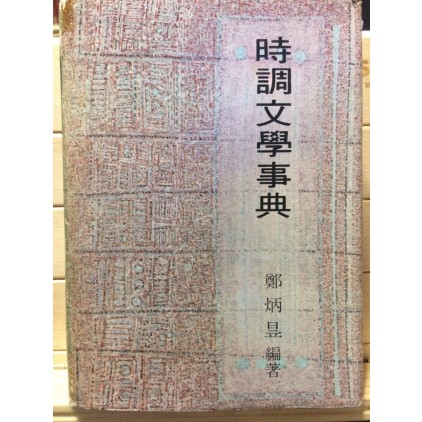 時調文學事典
鄭炳昱 編著